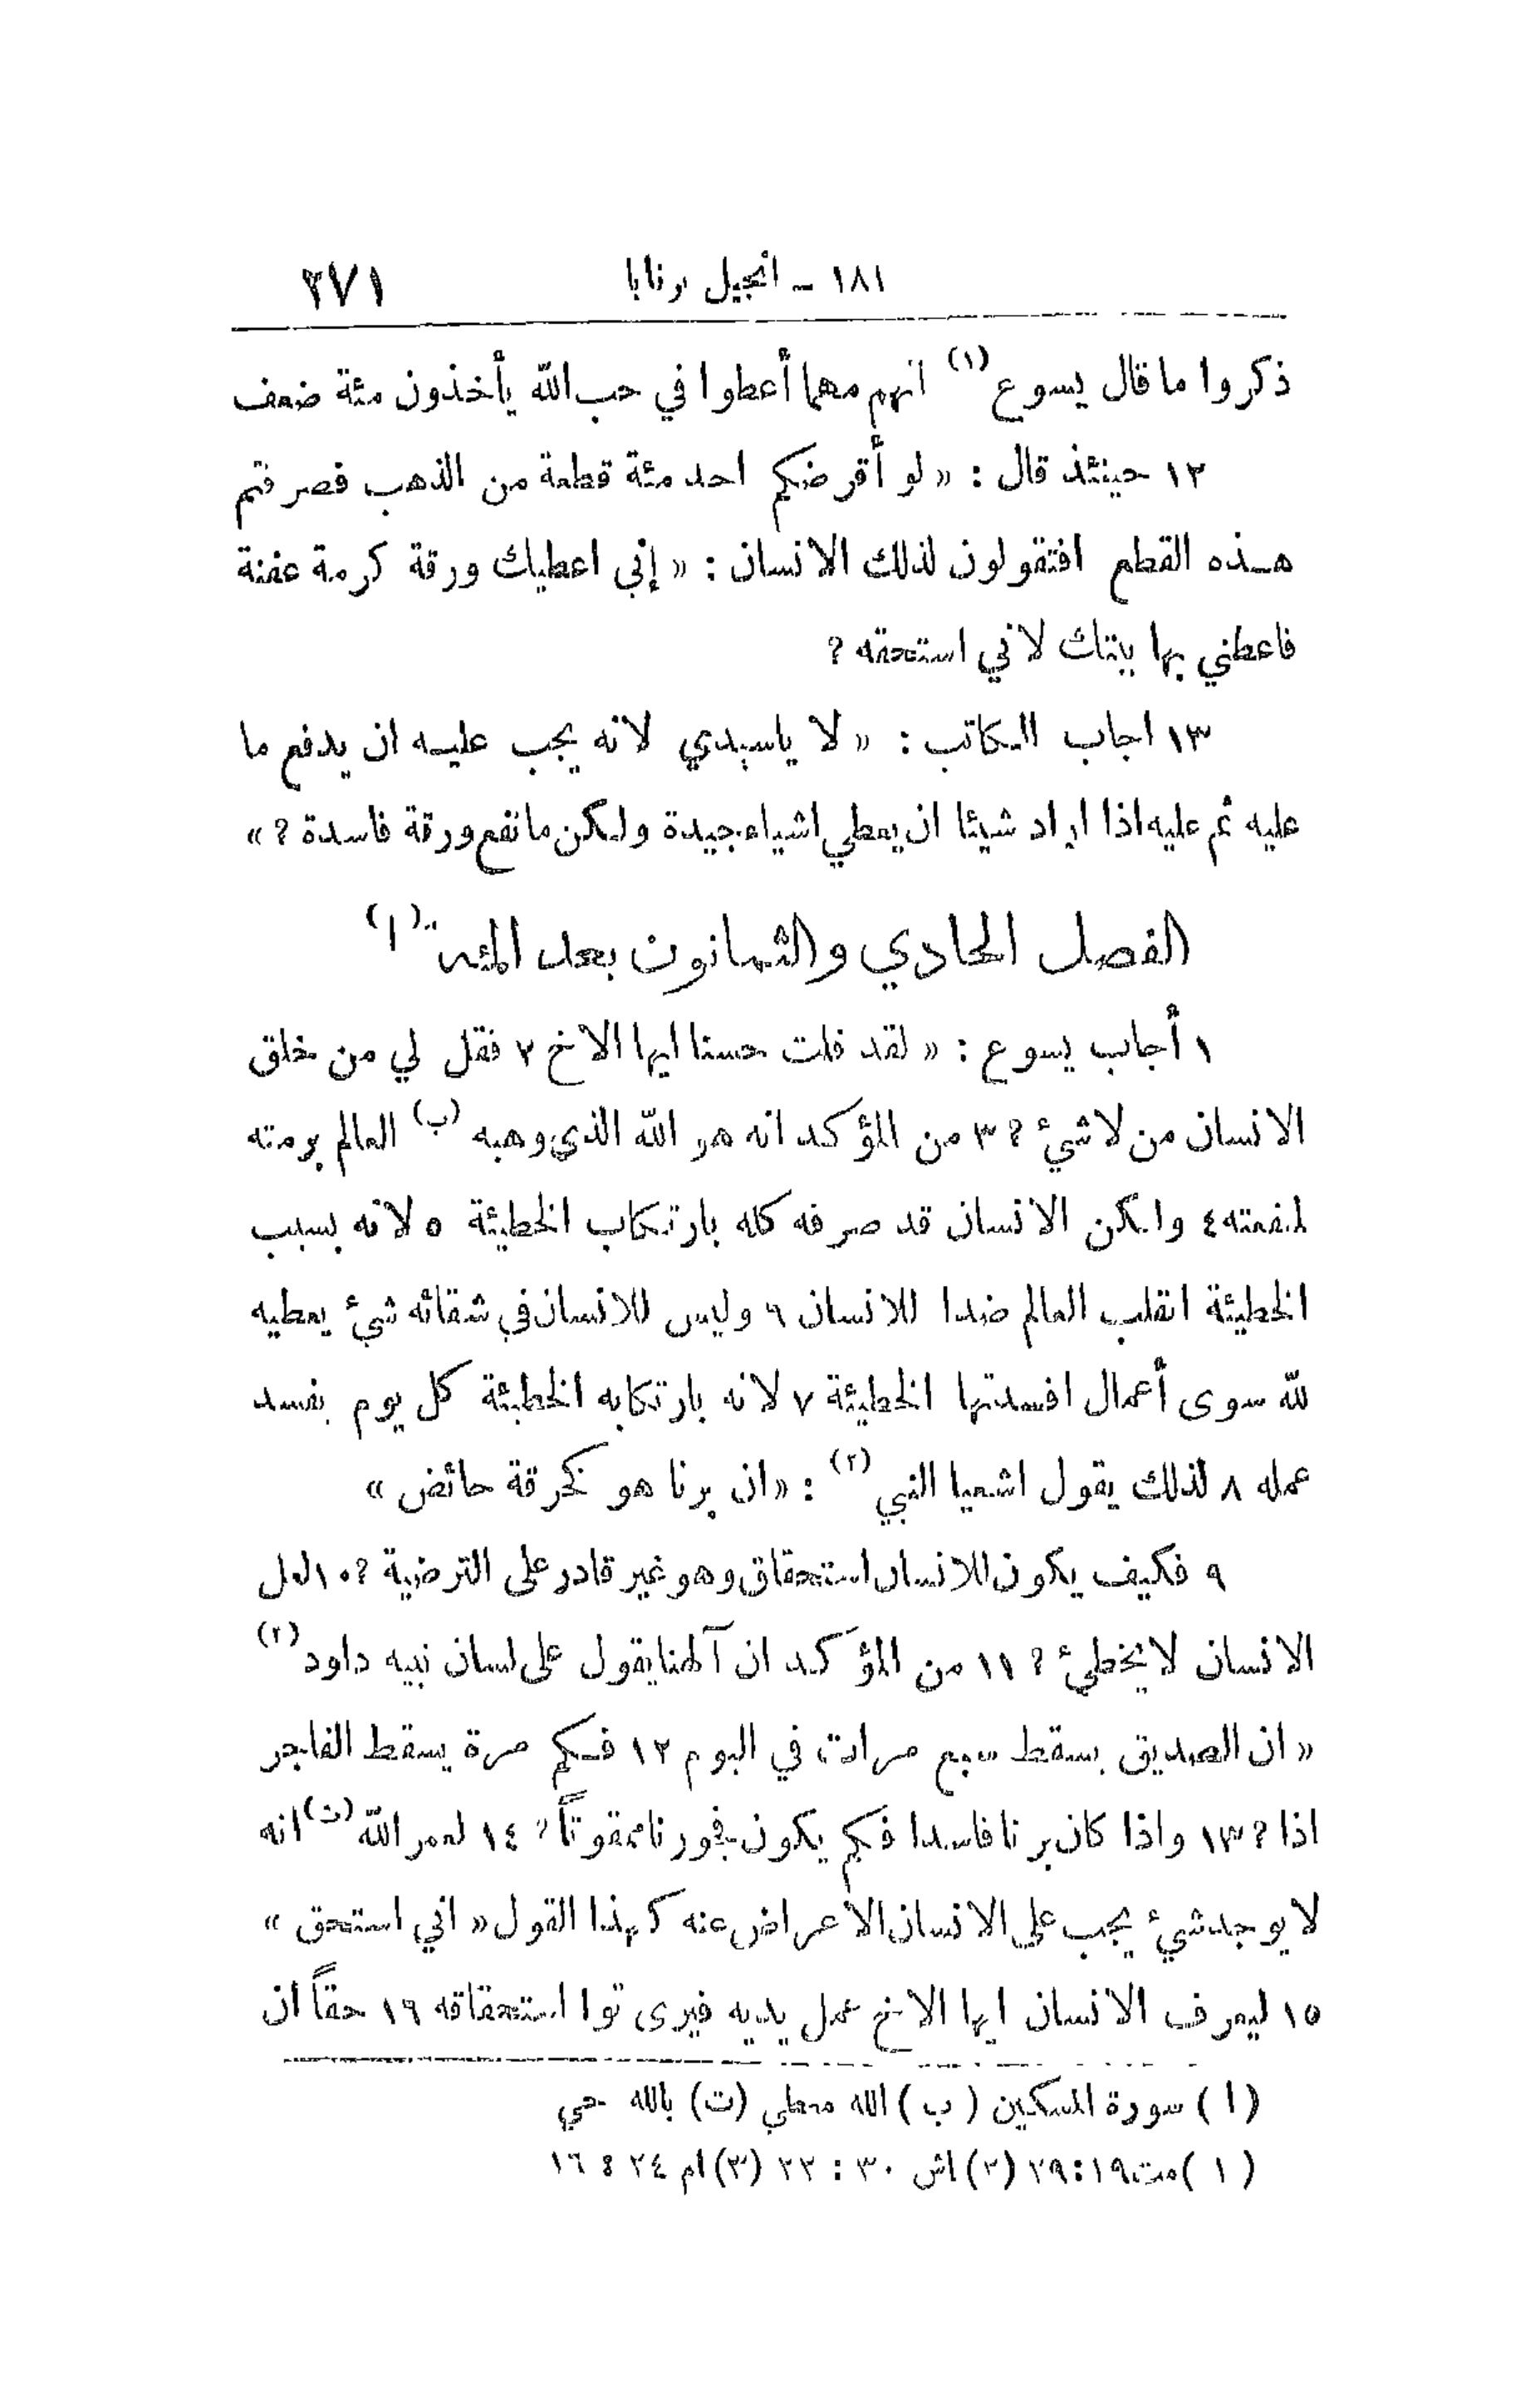 ١٨١ - انجيل برنابا ٢٧١
ذكروا ما قال يسوع (١) انهم مهما أعطوا في حب الله يأخذون مئة ضعف
١٢ حينئذ قال : « لو أقرضكم احد مئة قطعة من الذهب فصرفتم
هذه القطع افتقولون لذلك الانسان : « إني اعطيك ورقة كرمة عفنة
فاعطني بها بيتك لاني استحقه ?
١٣ اجاب الكاتب : « لا ياسيدي لانه يجب عليه ان يدفع ما
عليه ثم عليه اذا اراد شيئا ان يعطي اشياء جيدة ولكن ما نفع ورقة فاسدة ? »
الفصل الحادي والثمانون بعد المئة (١)
١ أجاب يسوع : « لقد قلت حسنا ايها الاخ ٢ فقل لي من خلق
الانسان من لا شيء ? ٣ من المؤكد انه هو الله الذي وهبه (ب) العالم برمته
لمنفعته ٤ ولكن الانسان قد صرفه كله بارتكاب الخطيئة ٥ لانه بسبب
الخطيئة انقلب العالم ضدا للانسان ٦ وليس للانسان في شقائه شيء يعطيه
لله سوى أعمال افسدتها الخطيئة ٧ لانه بارتكابه الخطيئة كل يوم يفسد
عمله ٨ لذلك يقول اشعيا النبي (٢) : « ان برنا هو كخرقة حائض »
٩ فكيف يكون للانسان استحقاق وهو غير قادر على الترضية ? ١٠ لعل
الانسان لا يخطيء ? ١١ من المؤكد ان آلهنا يقول على لسان نبيه داود (٢)
« ان الصديق يسقط سبع مرات في اليوم ١٢ فكم مرة يسقط الفاجر
اذا ? ١٣ واذا كان برنا فاسدا فكم يكون فجورنا ممقوتاً ? ١٤ لعمر الله (ت) انه
لا يوجد شيء يجب على الانسان الاعراض عنه كهذا القول « اني استحق »
١٥ ليعرف الانسان ايها الاخ عمل يديه فيرى توا استحقاقه ١٦ حقاً ان
(ا) سورة المسكين (ب) الله معطي (ت) بالله حي
(١) مت ١٩ : ٢٩ (٢) اش ٣٠ : ٢٢ (٣) ام ٢٤ : ١٦